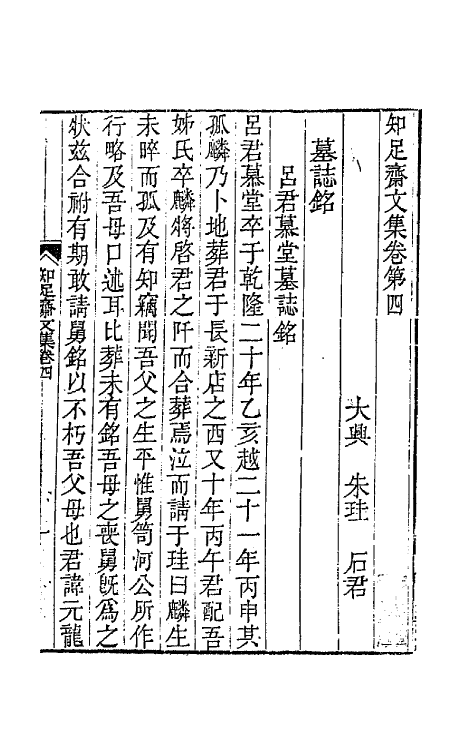 知足齋文集卷第四
大興　朱珪　石君
墓誌銘
呂君慕堂墓誌銘
呂君慕堂卒于乾隆二十年乙亥越二十一年丙申其
孤麟乃卜地葬君于長新店之西又十年丙午君配吾
姊氏卒麟將啓君之阡而合葬焉泣而請于珪曰麟生
未晬而孤及有知竊聞吾父之生平惟舅笥河公所作
行略及吾母口述耳比葬未有銘吾母之喪舅旣爲之
狀兹合祔有期敢請舅銘以不朽吾父母也君諱元龍
知足齋文集卷四
一